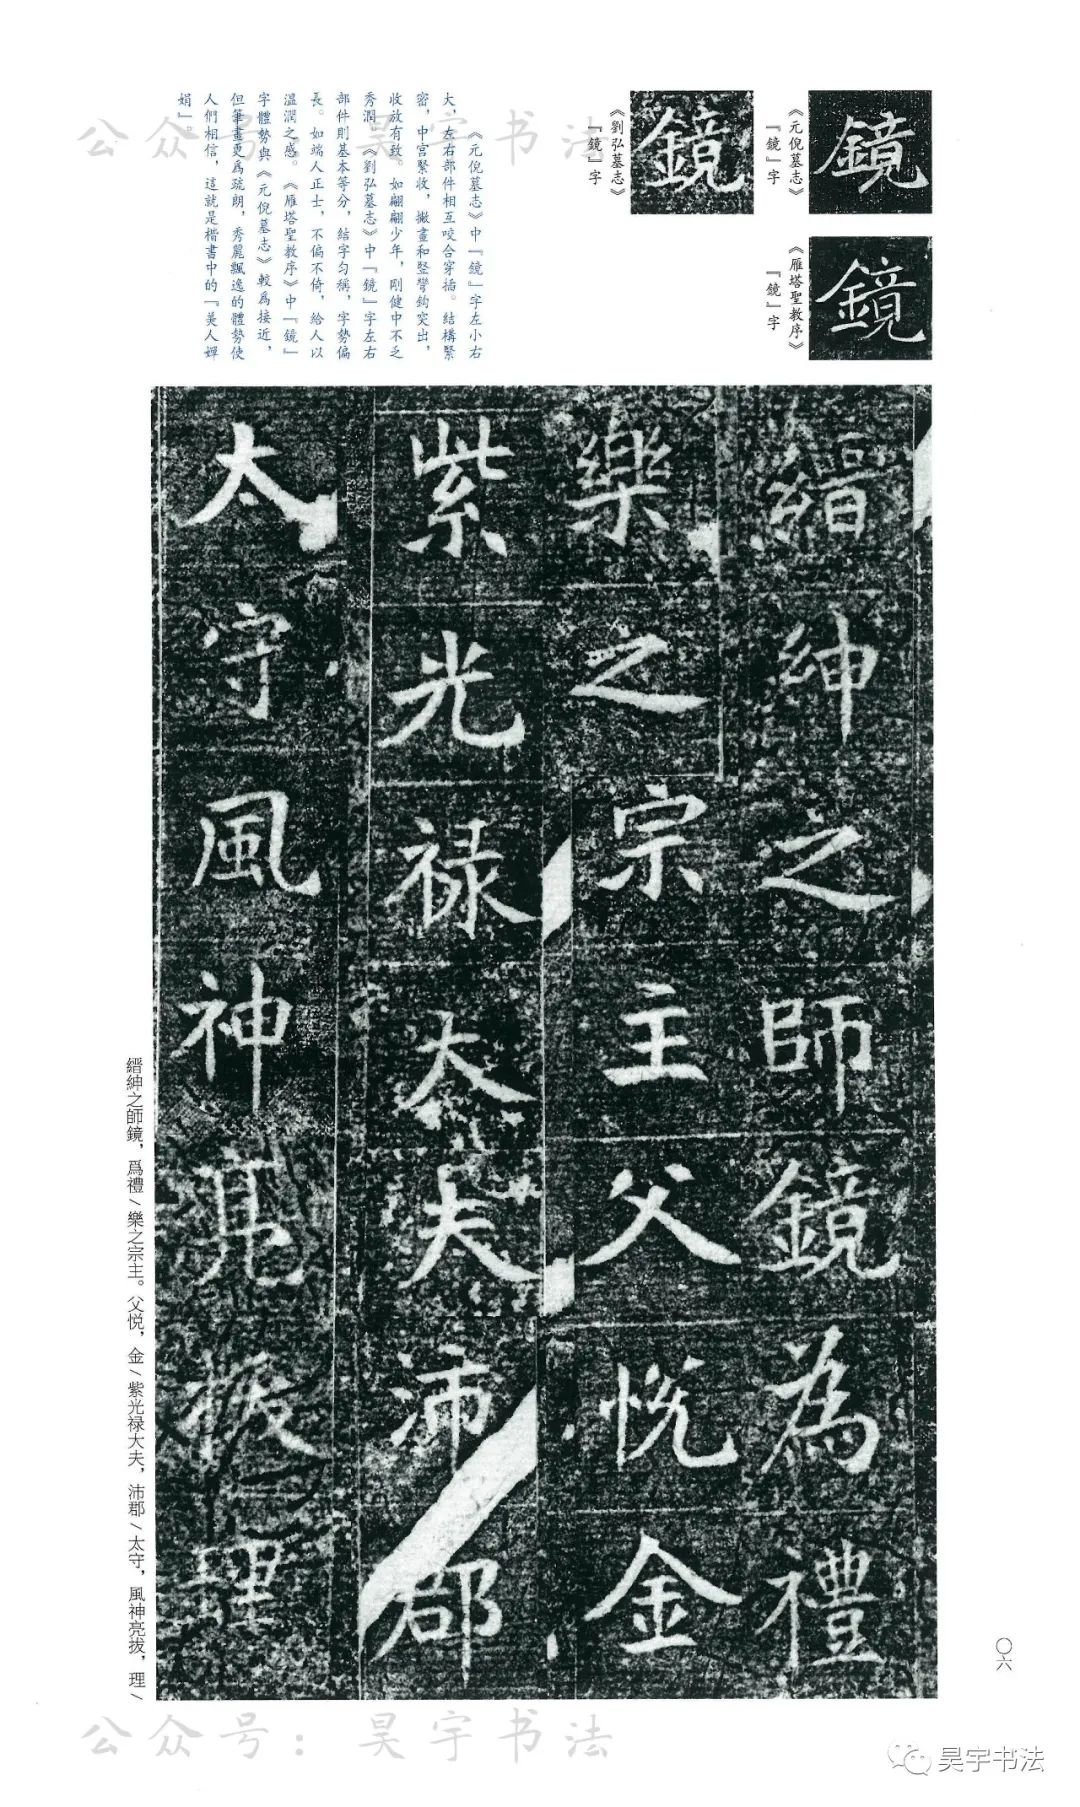 《元倪墓志》
『鏡』字
《劉弘墓志》
『鏡』字
《雁塔聖教序》
『鏡』字
鏡
鏡
鏡
《元倪墓志》中『鏡』字左小右
大，左右部件相互咬合穿插。結構緊
密，中宮緊收，撇畫和竪彎鈎突出，
收放有致。如翩翩少年，剛健中不乏
秀潤。《劉弘墓志》中『鏡』字左右
部件則基本等分，結字勻稱，字勢偏
長。如端人正士，不偏不倚，給人以
溫潤之感。《雁塔聖教序》中『鏡』
字體勢與《元倪墓志》較爲接近，
但筆畫更爲疏朗，秀麗飄逸的體勢使
人們相信，這就是楷書中的『美人嬋
娟』。
縉紳之師鏡為禮
樂之宗主父悦金
紫光禄大夫沛郡
太守風神亮拔理
縉紳之師鏡，爲禮/樂之宗主。父悦，金/紫光禄大夫，沛郡/太守，風神亮拔，理/
〇六
公众号：昊宇书法
公众号：昊宇书法
昊宇书法